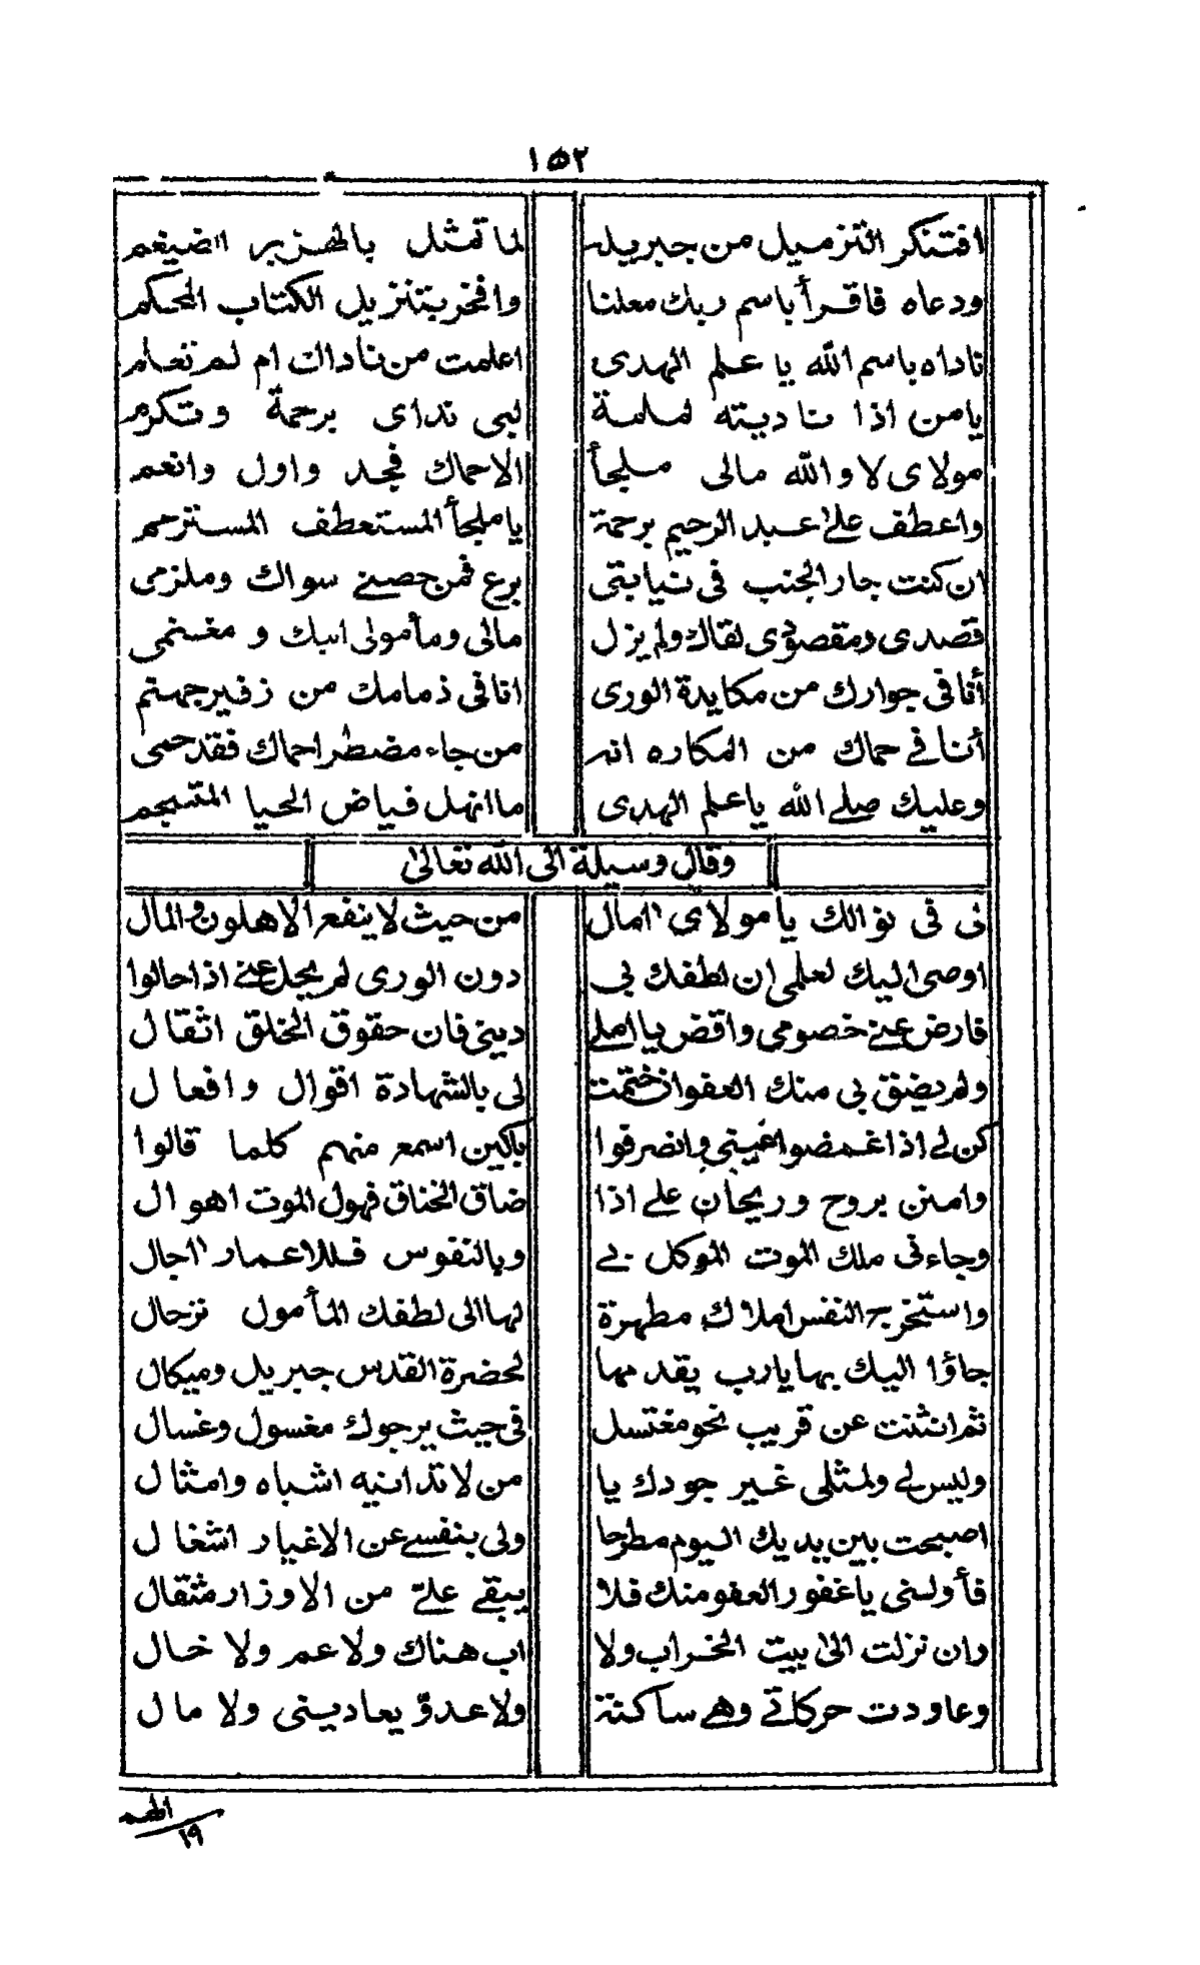 ١٥٢
افتنكر التنزميل من جبريل لما تمثل بالهزبر الضيغم
ودعاه فاقرأ باسم ربك معلنا وافخر بتنزيل الكتاب المحكم
ناداه باسم الله يا علم الهدى اعلمت من ناداك ام لم تعلم
يامن اذا ناديته لملمة لبى نداى برحمة وتكرم
مولاى لا والله مالى ملجأ الاحماك فجد واول وانعم
واعطف على عبد الرحيم برحمة يا ملجأ المستعطف المسترحم
ان كنت جار الجنب فى نيابتى برع فمن حصنے سواك وملزمى
قصدى ومقصودى لقاك ولم يزل مالى ومأمولى اليك و مغنمى
أنا فى جوارك من مكايدة الورى انا فى ذمامك من زفير جهنم
أنا فے حماك من المكاره انه من جاء مضطرا حماك فقد حمى
وعليك صلے الله يا علم الهدى ما انهل فياض الحيا المتسجم
وقال وسيلة الى الله تعالى
لى فى نوالك يا مولاى امال من حيث لا ينفع الاهلون والمال
اوصى اليك لعلمى ان لطفك بى دون الورى لم يحل عنے اذا حالوا
فارض عنے خصومى واقض يا املے دينى فان حقوق الخلق اثقال
ولم يضق بى منك العفو ان ختمت لى بالشهادة اقوال وافعال
كن لے اذا غمضوا عينى وانصرفوا باكين اسمع منهم كلما قالوا
وامنن بروح وريحان علے اذا ضاق الخناق فهول الموت اهوال
وجاءنى ملك الموت الموكل بے وبالنفوس فللاعمار اجال
واستخرج النفس املاك مطهرة لها الى لطفك المأمول ترحال
جاؤا اليك بها يارب يقدمها لحضرة القدس جبريل وميكال
ثم انثنت عن قريب نحو مغتسل فى حيث يرجوك مغسول وغسال
وليس لے ولمثلى غير جودك يا من لا تدانيه اشباه وامثال
اصبحت بين يديك اليوم مطرحا ولى بنفسے عن الاغيار اشغال
فأولنى يا غفور العفو منك فلا يبقے علىّ من الاوزار مثقال
وان نزلت الى بيت الخراب ولا اب هناك ولا عم ولا خال
وعاودت حركاتے وهے ساكنة ولا عدوّ يعادينى ولا مال
١٩